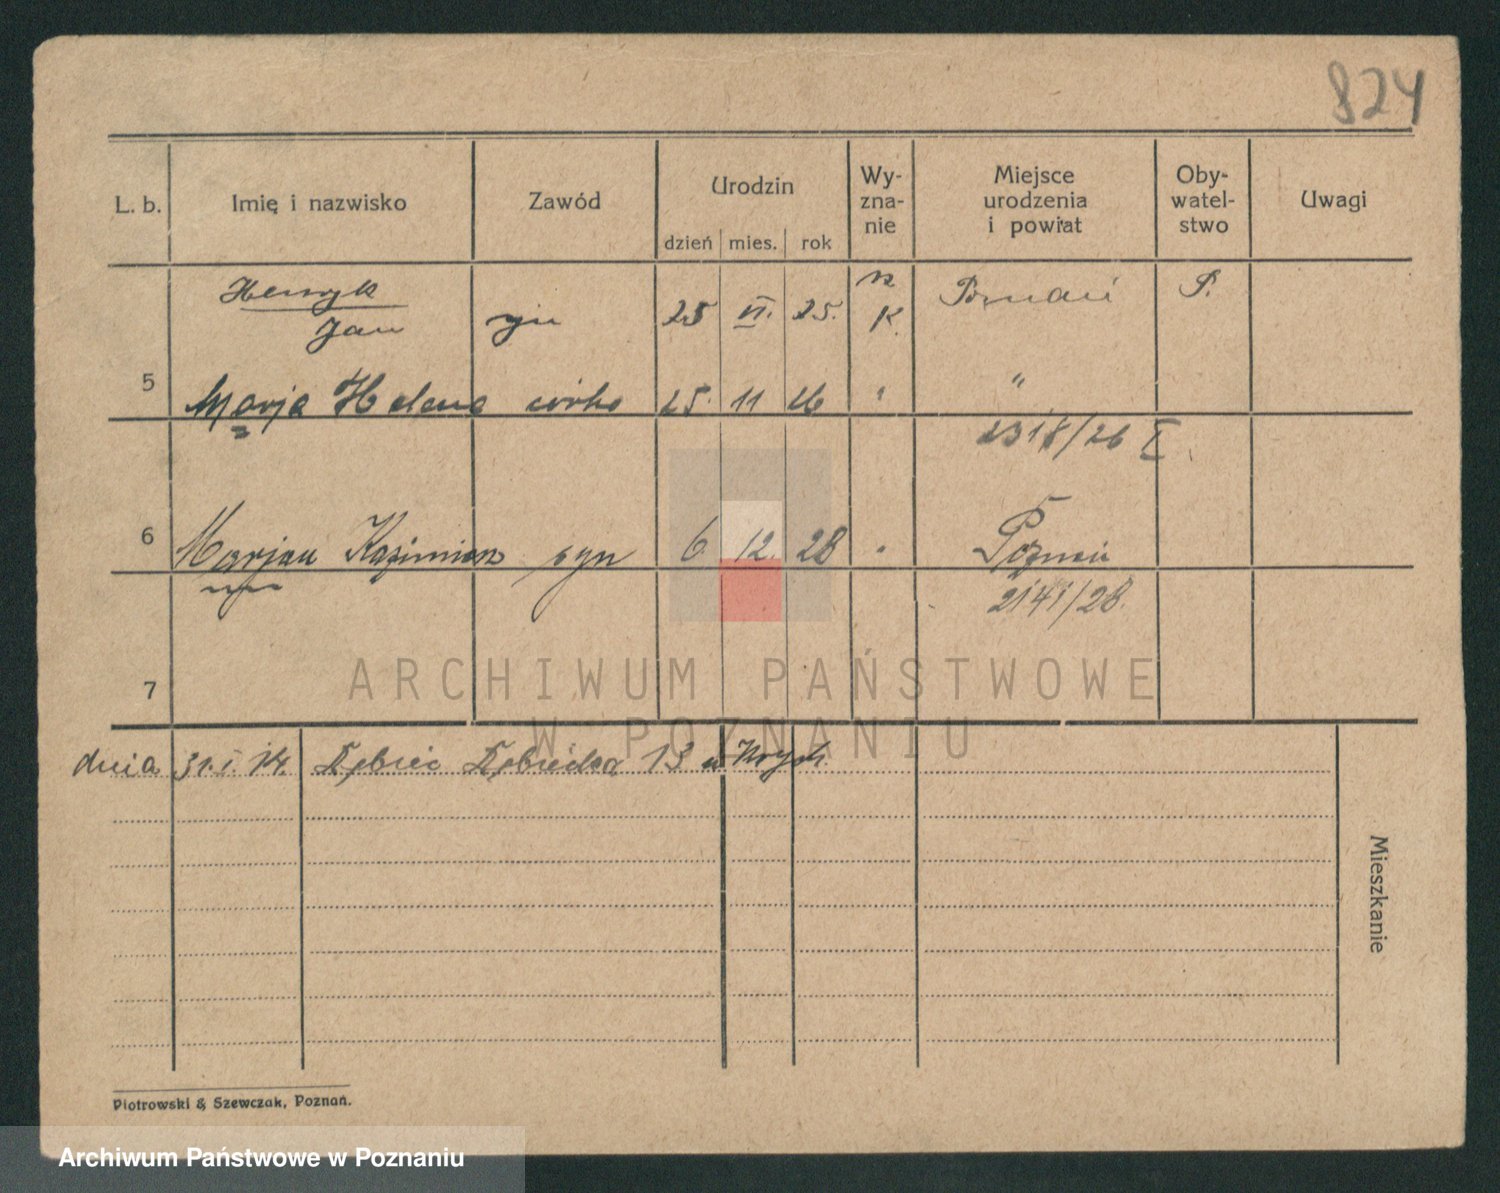 824
L. b. Imię i nazwisko Zawód Urodzin dzień mies. rok Wy-zna-nie Miejsce urodzenia i powiat Oby-watel-stwo Uwagi
Henryk
Jan syn 25 VI. 25. K. Poznań P.
5 Marja Helena córka 25. 11 26 " "
2318/26 I
6 Marjan Kazimierz syn 6 12. 28 " Poznań
2141/28.
7
ARCHIWUM PAŃSTWOWE
W POZNANIU
dnia 31. I. 14. Dębiec Dębiecka 13
Mieszkanie
Piotrowski & Szewczak, Poznań.
Archiwum Państwowe w Poznaniu